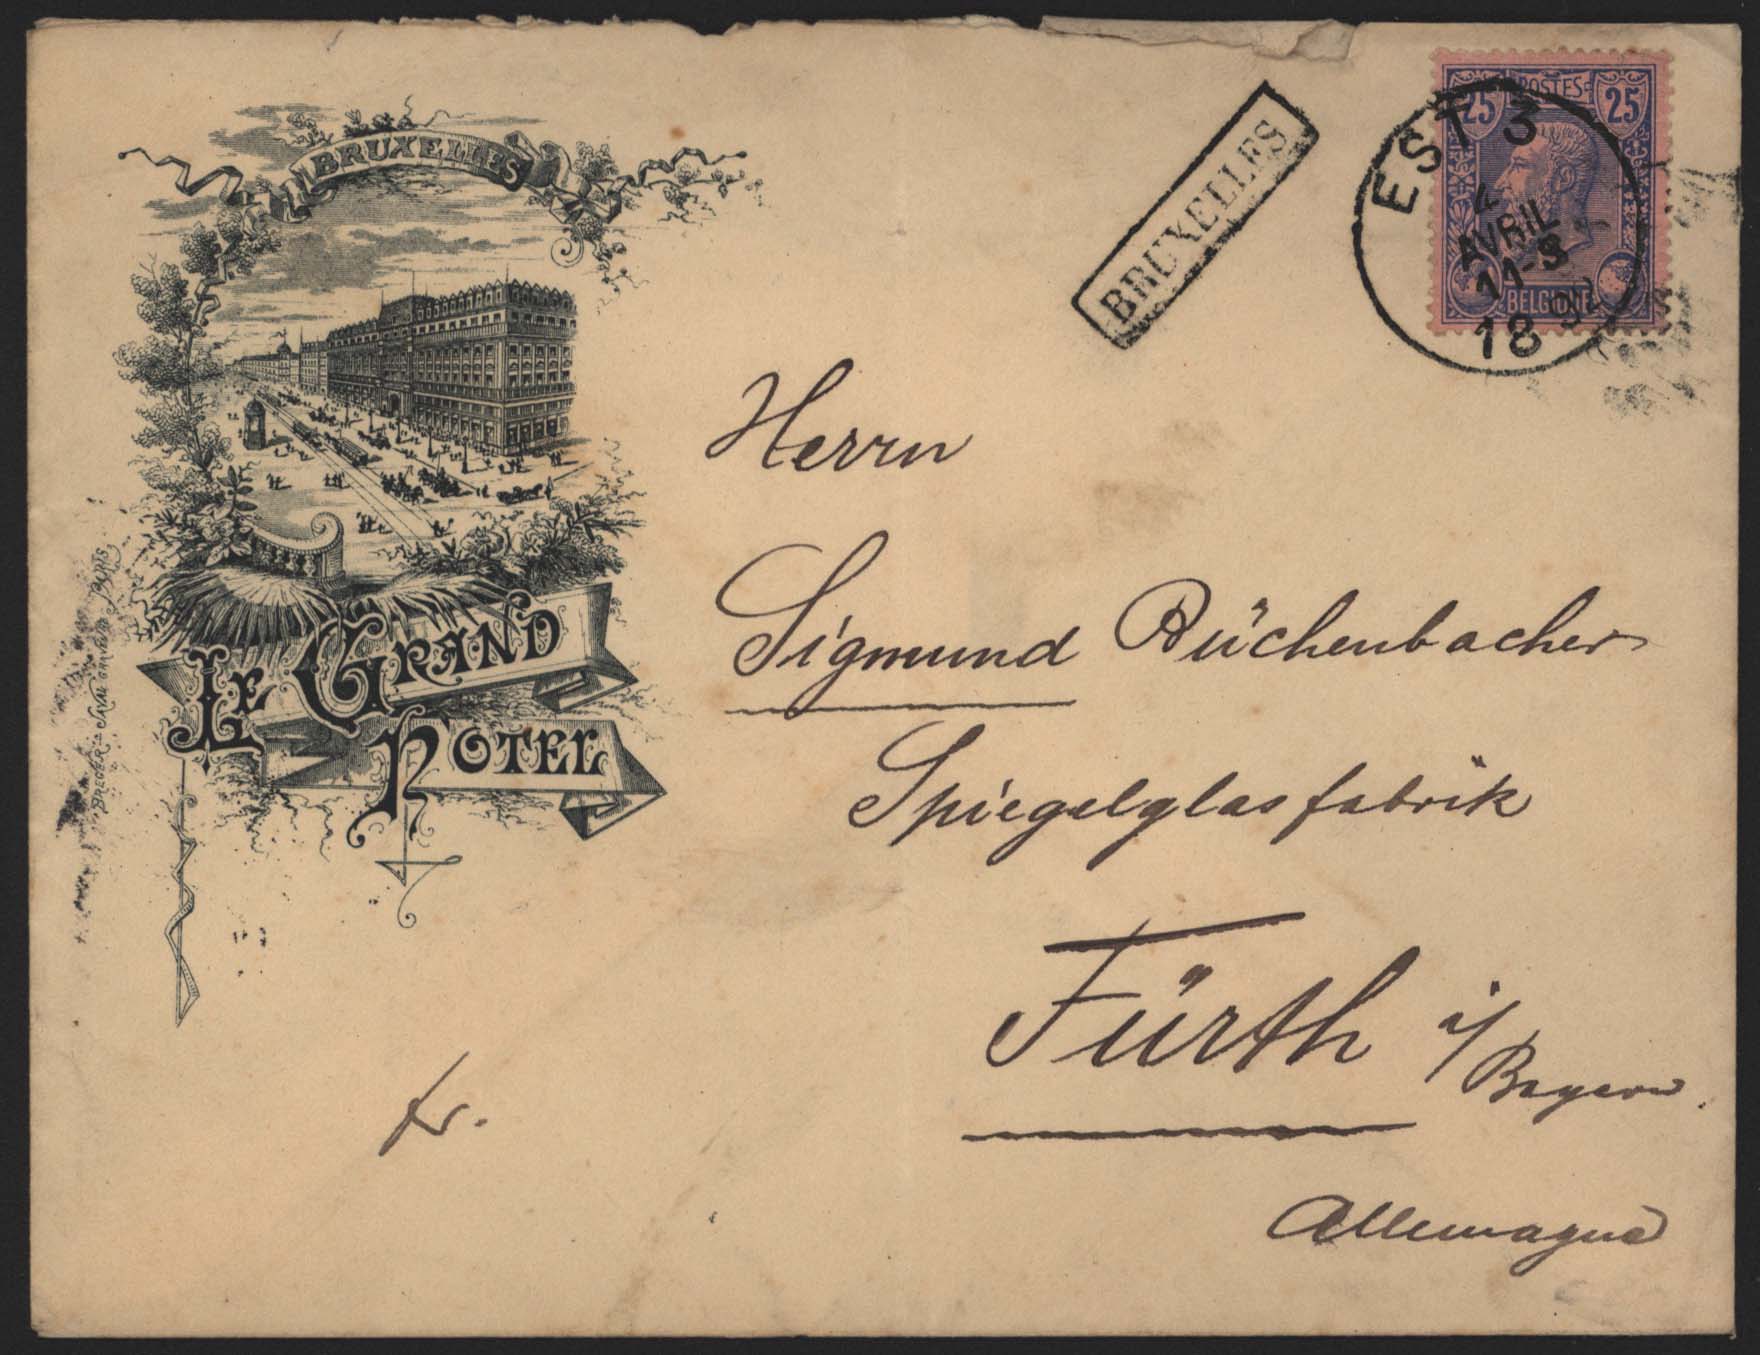 BRUXELLES
LE GRAND
HÔTEL
BRUXELLES
25 POSTES 25
BELGIQUE
EST 3
4
AVRIL
11-S
18
Herrn
Sigmund Büchenbacher
Spiegelglasfabrik
Fürth i/
Bayern.
Allemagne
fr.